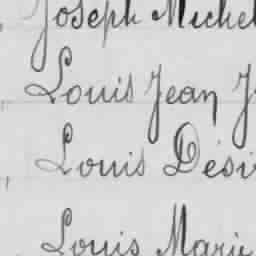 Joseph Michel
Louis Jean J
Louis Dési
Louis Marie